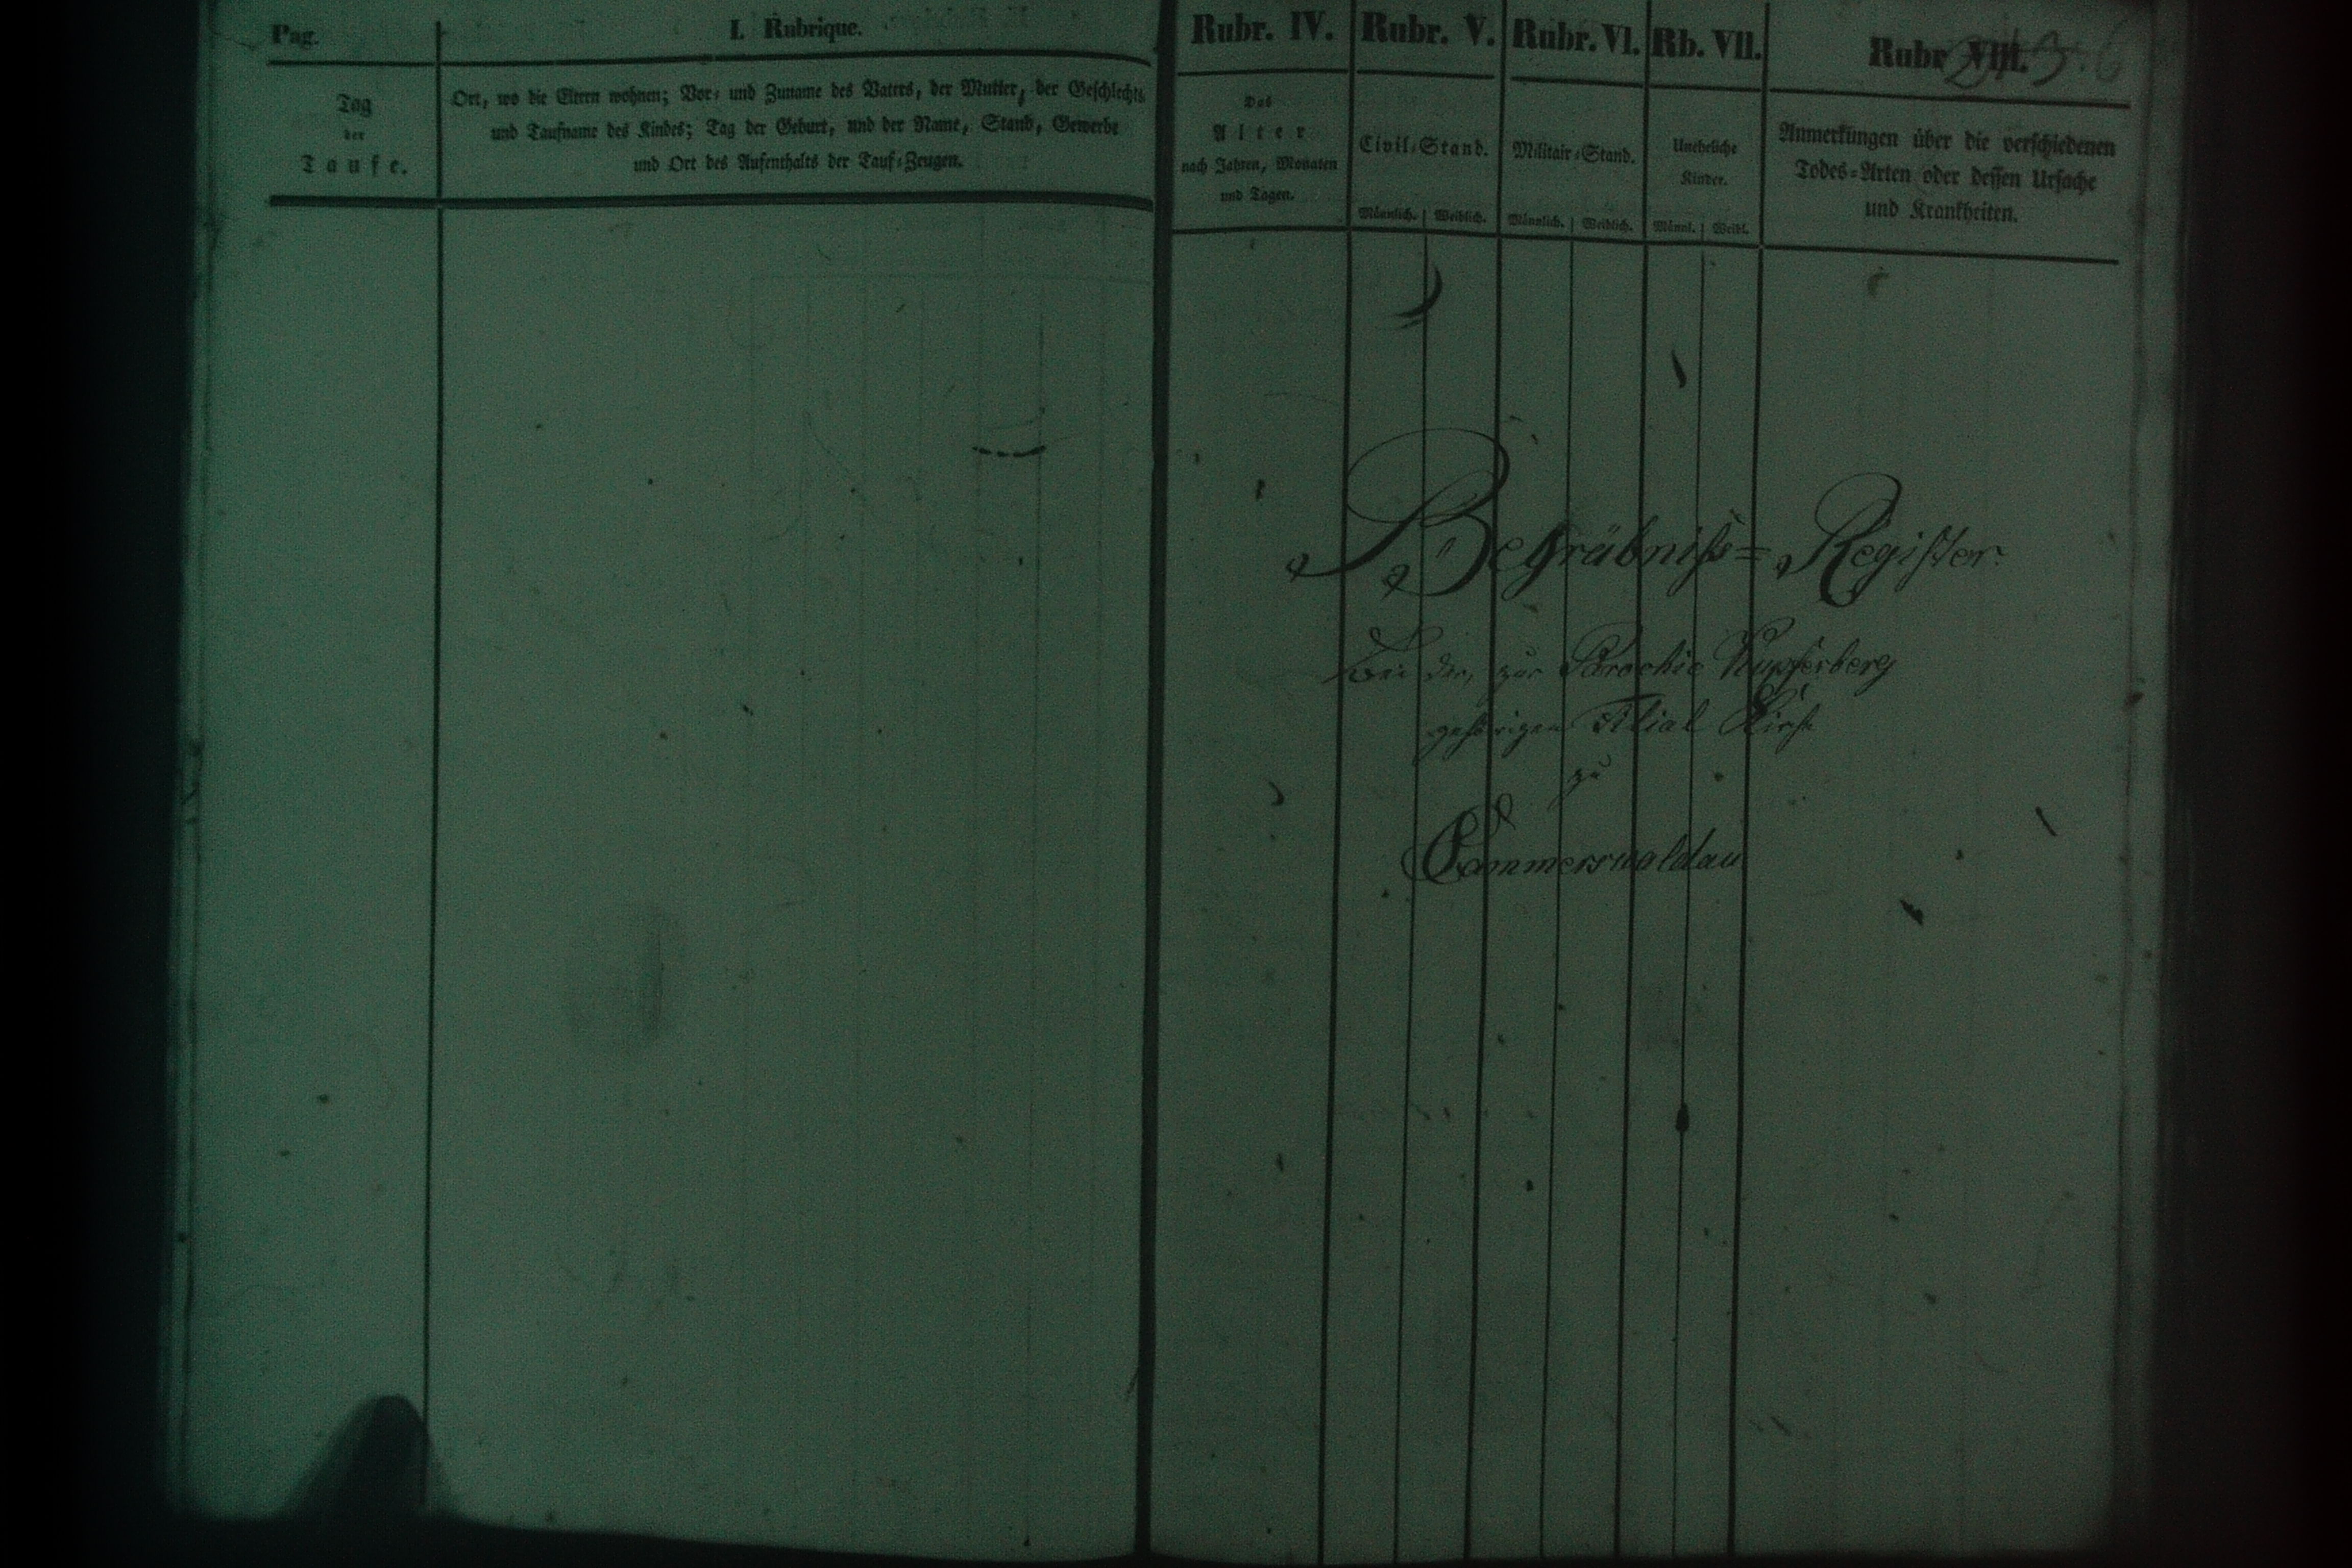 Pag.
I. Rubrique.
Tag
der
Taufe.
Ort, wo die Eltern wohnen; Vor- und Zuname des Vaters, der Mutter, der Geschlechts-
und Taufname des Kindes; Tag der Geburt, und der Name, Stand, Gewerbe
und Ort des Aufenthalts der Tauf-Zeugen.
Rubr. IV.
Das
Alter
nach Jahren, Monaten
und Tagen.
Rubr. V.
Civil-Stand.
Männlich. Weiblich.
Rubr. VI.
Militair-Stand.
Männlich. Weiblich.
Rb. VII.
Uneheliche
Kinder.
Männl. Weibl.
Rubr. VIII.
Anmerkungen über die verschiedenen
Todes-Arten oder dessen Ursache
und Krankheiten.
Begräbniß=Register
bei der, zur Parochie Kupferberg
gehörigen Filial Kirche
zu
Cammerswaldau